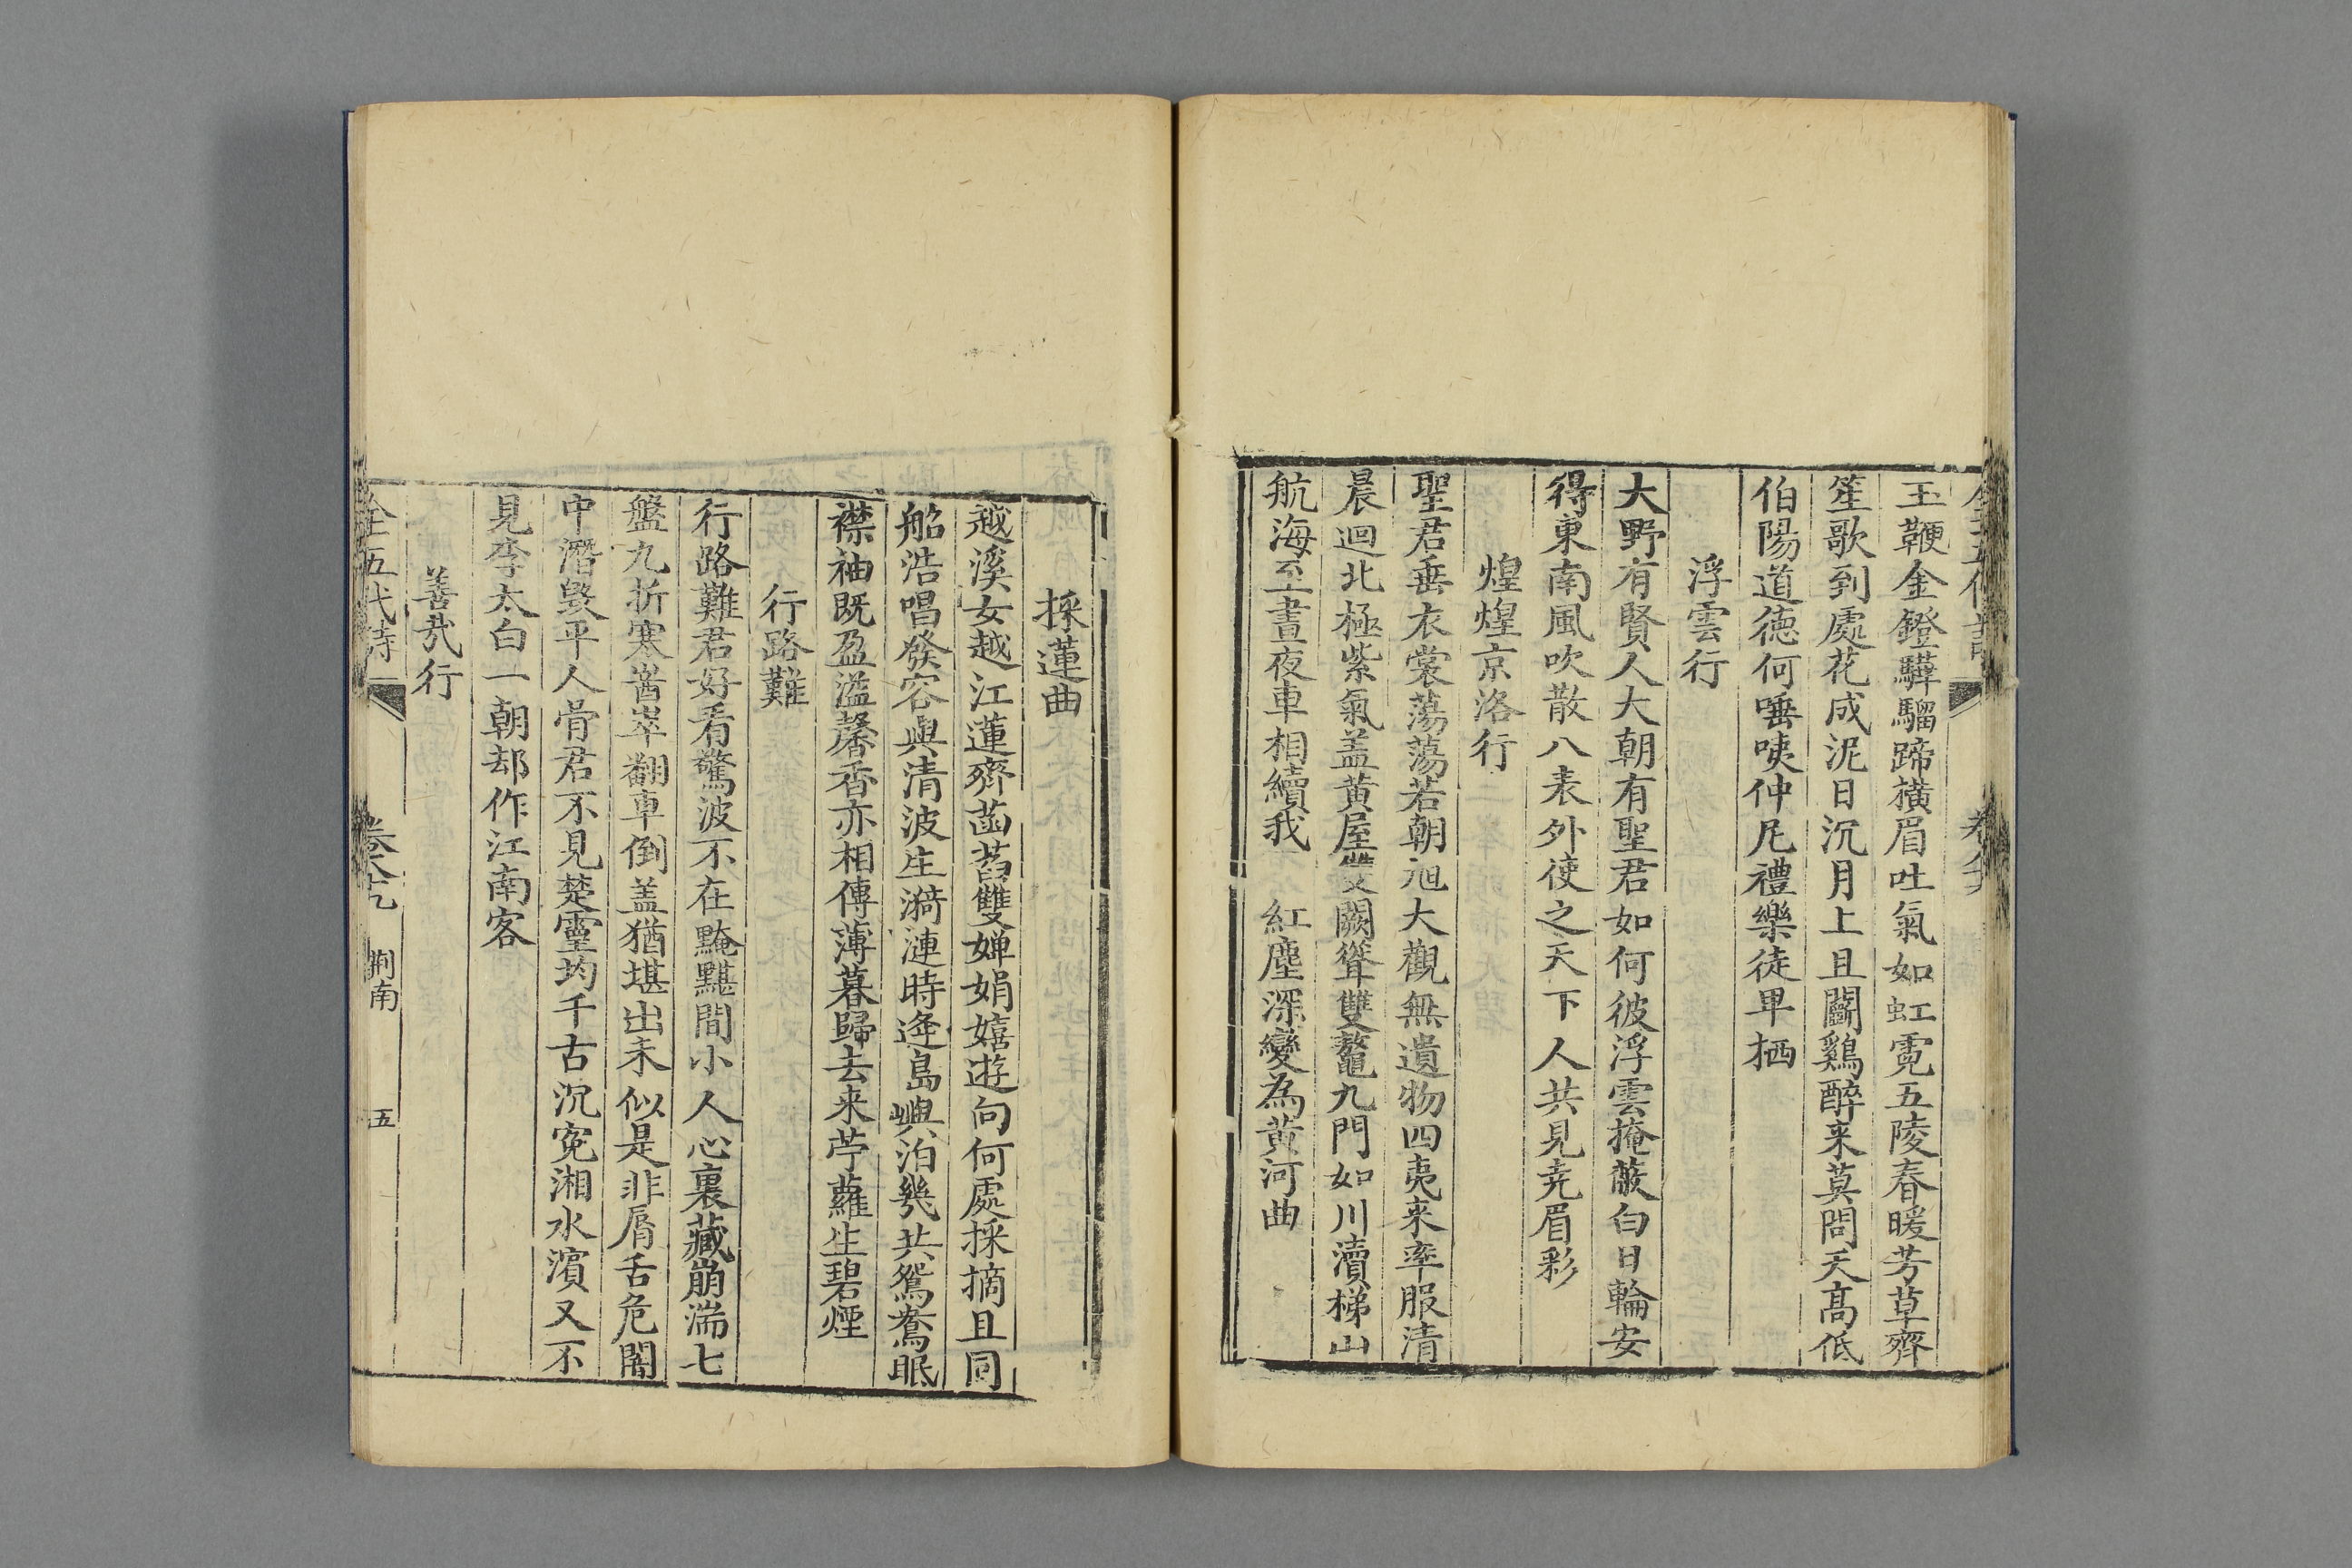 玉鞭金鐙驊騮蹄橫眉吐氣如虹霓五陵春暖芳草齊
笙歌到處花成泥日沉月上且鬭鷄醉来莫問天高低
伯陽道徳何唾咦仲尼禮樂徒卑栖
浮雲行
大野有賢人大朝有聖君如何彼浮雲掩蔽白日輪安
得東南風吹散八表外使之天下人共見尭眉彩
煌煌京洛行
聖君垂衣裳蕩蕩若朝旭大觀無遺物四夷来率服清
晨迴北極紫氣盖黃屋雙闕聳雙鼇九門如川瀆梯山
航海至晝夜車相續我　紅塵深變為黃河曲
採蓮曲
越溪女越江蓮齊菡萏雙嬋娟嬉遊向何處採摘且同
船浩唱發容與清波生漪漣時逢島嶼泊幾共鴛鴦眠
襟袖既盈溢馨香亦相傳薄暮歸去来苧蘿生碧煙
行路難
行路難君好看驚波不在黤黮間小人心裏藏崩湍七
盤九折寒崷崒翻車倒盖猶堪出未似是非脣舌危闇
中潛毀平人骨君不見楚靈均千古沉冤湘水濱又不
見李太白一朝却作江南客
善哉行
全五代詩
荆南
五